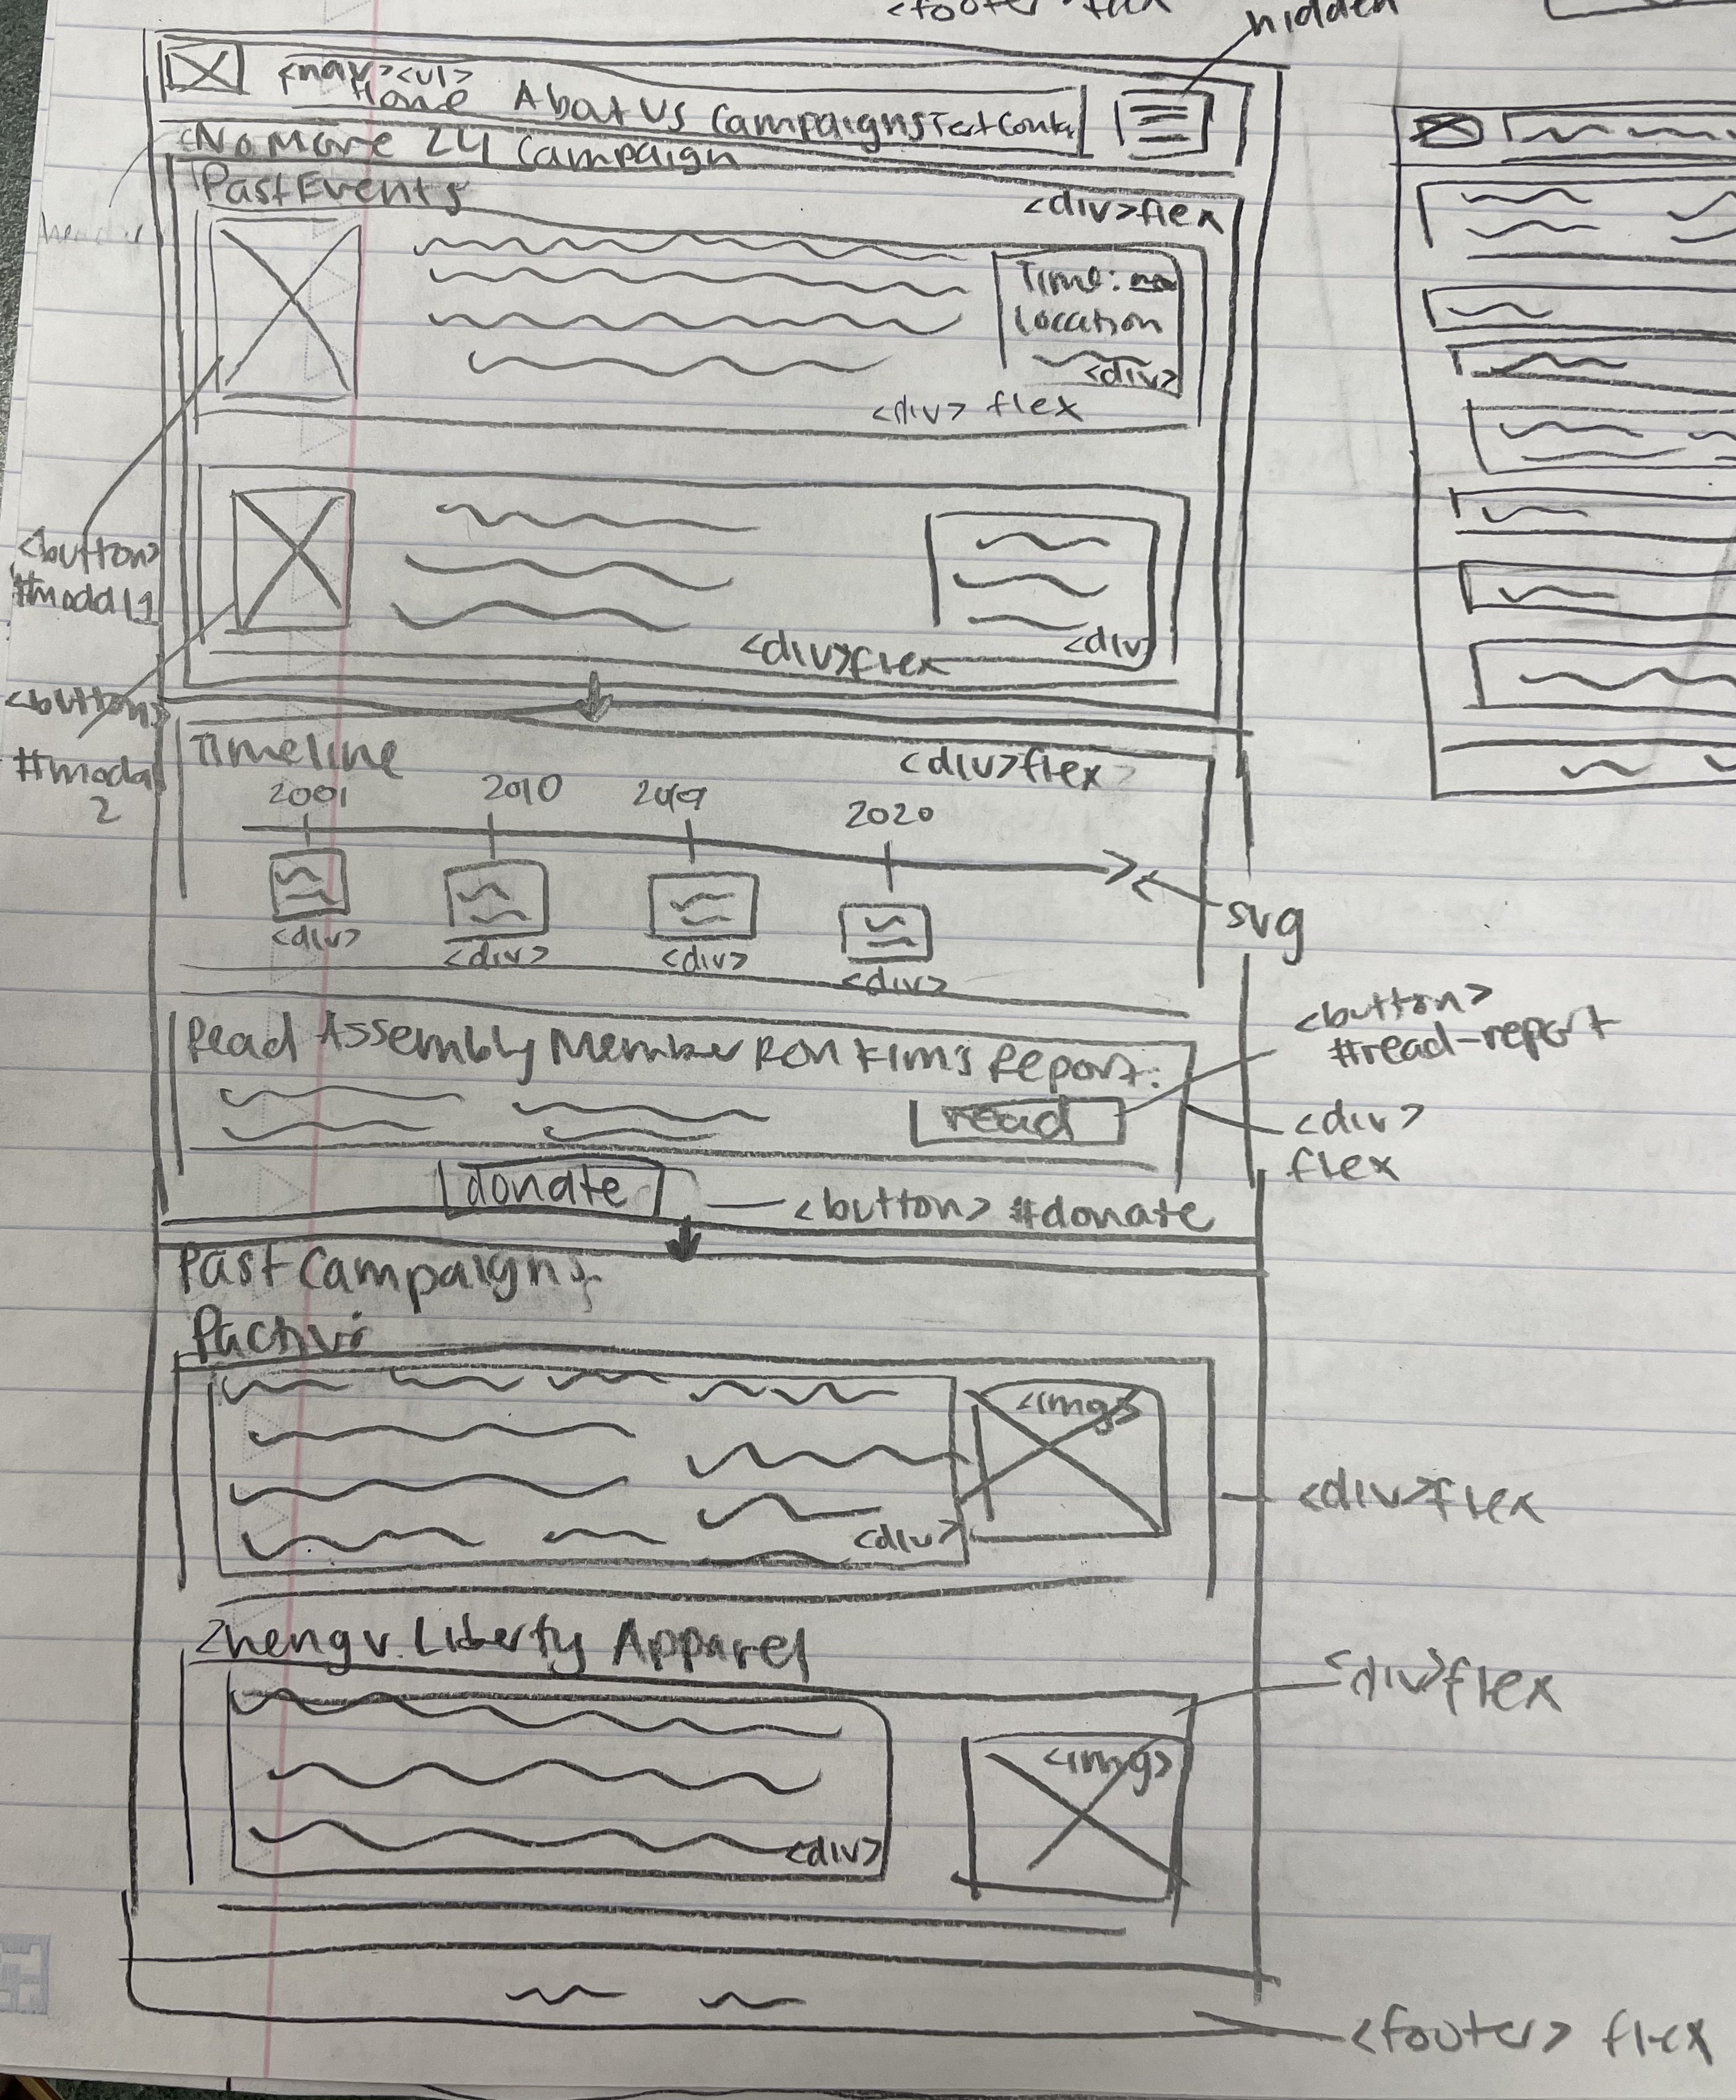 <footer flex
hidden
<nav><ul>
Home About Us Campaigns
No More 24 Campaign
Past Events
<div>flex
Time:
Location
<div>
<div> flex
<button>
#modal1
<div>flex
<div>
<button>
#modal
2
Timeline
<div>flex>
2001 2010 2019 2020
<div> <div> <div> <div>
svg
Read Assembly Member Ron Kim's Report:
read
<button>
#read-report
<div>
flex
donate
<button> #donate
Past Campaigns
<img>
<div>
<div>flex
Zheng v. Liberty Apparel
<div>flex
<img>
<div>
<footer> flex